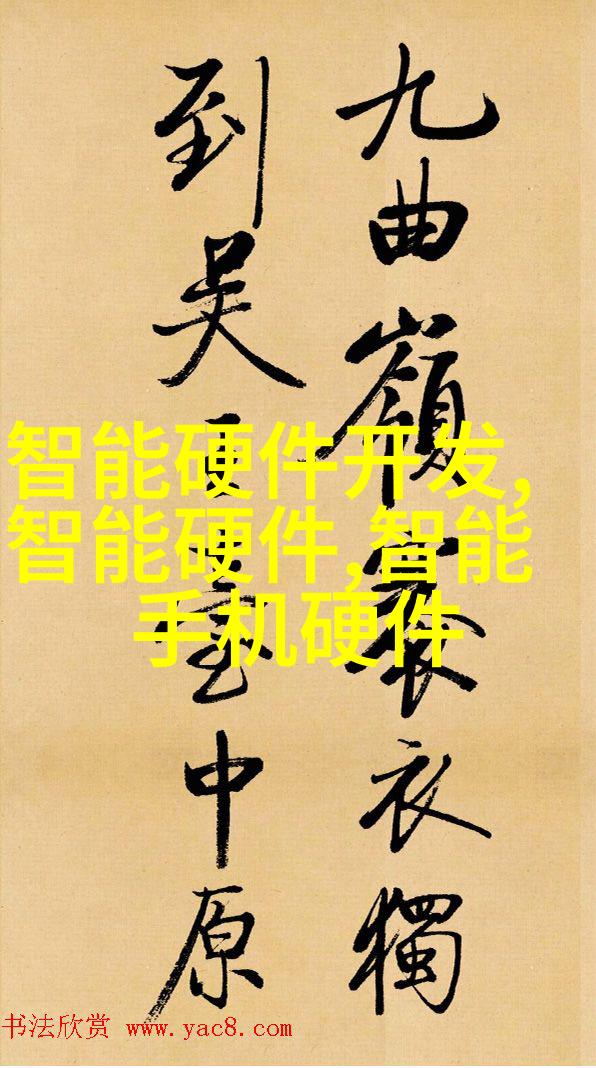 九曲嶺褰衣獨
到吳王臺中原
智能硬件开发,
智能硬件,智能
手机硬件
书法欣赏 www.yac8.com